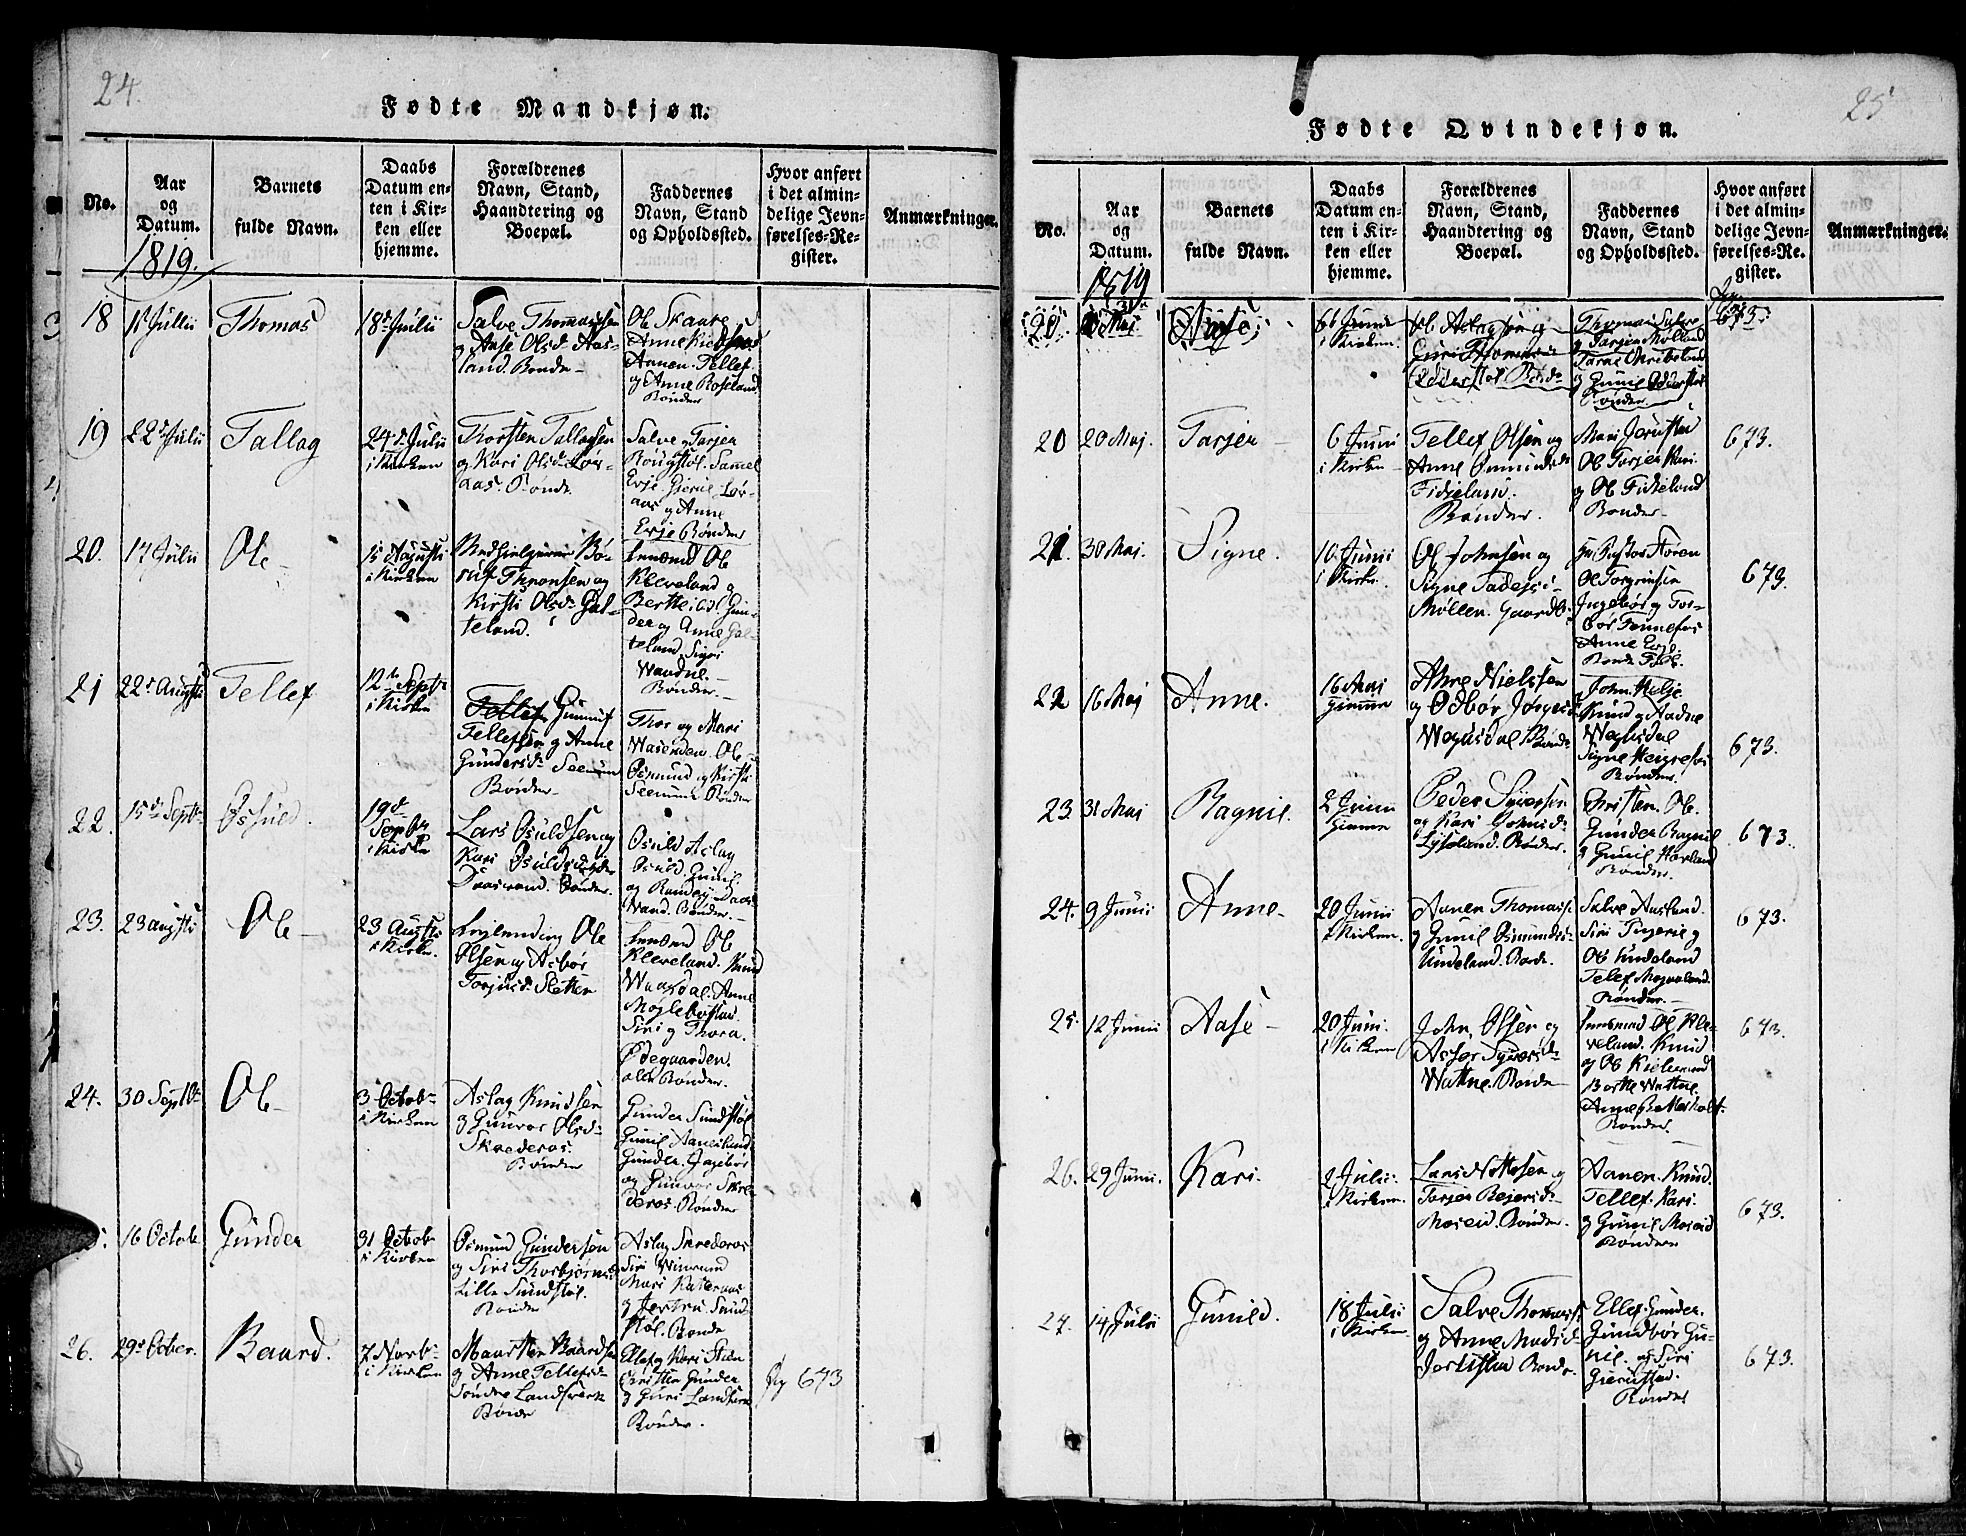 24.
Fødte Mandkjøn.
No.
Aar
og
Datum.
1819.
Barnets
fulde Navn.
Daabs
Datum en-
ten i Kir-
ken eller
hjemme.
Forældrenes
Navn, Stand,
Haandtering og
Boepæl.
Faddernes
Navn, Stand
og Opholdssted.
Hvor anført
i det almin-
delige Jevn-
førelses-Re-
gister.
Anmærkninger.
18
Julii
Thomas
18d Julii
Salve Thomassen
og Aase Olsd. Aas-
land. Bønder
Ole Skaare
Aanen Tellef
og Anne Roseland
Bønder
19
22d Julii
Tallag
24d Julii
i Kirken
Thorsten Tallagsen
og Kari Olsd. Lør-
aas. Bønder
Salve og Tarjer
Rougstøl. Samel
Evje Gjeruil Lør-
aas og Anne
Evje Bønder
20.
17 Julii
Ole
15 Augusti
i Kirken
Kirsti Olsd. Gal-
teland.
Lensmd Ole
Kleveland og
Berthe ibdl Gun-
der og Anne Gal-
teland. Sigri
Waadne.
Bønder.
21
22d Augusti
Tellef
12te Septr
i Kirken
Gunnuf
Tellefsen og Anne
Gundersd. Seemun
Bønder
Thor og Mari
Wasenden. Ole
Osmund og Kirsti
Seemun Bønder
22.
15d Septr.
Ossuld.
19d
Septbr
i Kirken
Lars Osuldsen og
Kari Osuldsd.
Daasvand. Bønder.
Osuld Aslag
Osuld. Gunil
og Randei Daas-
Wand. Bønder.
23.
23 Augusti
Ole
23 Augusti
i Kirken
Ole
Olsen og Asbør
Torjusd. Sletten
Lensmd Ole
Kleveland. Knud
Waasdal. Anne
Møglebøstad.
Siri og Thora
Ødegaarden.
alle Bønder.
24.
30 Septbr
Ole
3 Octobr
i Kirken
Aslag Knudsen
og Gunvor Olsd.
Skrederos.
Bønder
Gunder Sundstøl
Gunil Aaneland
Gunder. Ingebør
og Gunvor Skre-
deros. Bønder
16 Octob.
Gunder
31 Octobr
i Kirken
Osmund Gundersen
og Siri Thorbjørnsd.
Lille Sundstøl.
Bønder
Aslag Skrederos
Siri
Mari
og Jertru. Sund-
støl. Bønder
26.
29d October.
Baard.
7 Novbr
i Kirken
Baardsen
og Anne Tellefsd.
Søndre Landsverk
Bønder
Ellef og Kari Steen
Christen Gunder
og Guri Landsverk
Bønder.
Pg 673
25
Fødte Qvindekjøn.
No.
Aar
og
Datum.
1819
Barnets
fulde Navn.
Daabs
Datum en-
ten i Kir-
ken eller
hjemme.
Forældrenes
Navn, Stand,
Haandtering og
Boepæl.
Faddernes
Navn, Stand
og Opholdssted.
Hvor anført
i det almin-
delige Jevn-
førelses-Re-
gister.
Anmærkninger.
20.
Maj
Aase
6te Junii
i Kirken
Ole Aslagsen og
Guri Thomasd.
Odderstøl Bønder
Thomas Salve
og Tarjer Møllland
og Gunil Odderstøl
Bønder
673.
20
20 Maj.
Tarjer
6 Junii
i Kirken
Tellef Olsen og
Anne Gunnuldsd.
Fidjeland.
Bønder.
Mari Jerustad
Ole Tarjer Kari
og Ole Fidjeland
Bønder
673.
21.
30 Maj.
Signe.
10 Junii
i Kirken
Ole Johnsen og
Signe Tadessd.
Møllen. Gaardb.
Hr. Pastor Støren
Ole Torgrimsen
Ingebør og Tor-
bør Fennefos
Anne Evje.
Bønde Folk.
673.
22
16 Maj
Anne.
16 Maj
hjemme
Ahre Nielssen
og Odbør Jørgensd.
Wegusdal Bønder
John. Helje
Knud og Aadne
Wegusdal
Signe
Bønder.
673.
23
31 Maj
Ragnil.
2 Junii
hjemme
Peder Syversen
og Kari Johnsd.
Lyseland. Bønder.
Christen. Ole.
Gunder Ragnil
og Gunil Hovland
Bønder.
673.
24.
9 Junii
Anne
20 Junii
i Kirken.
Aanen Thomass.
og Gunil Osmundsd.
Undeland. Bønder.
Salve Aasland.
Siri
Ole Undeland
Tellef
Bønder.
673.
25.
12 Junii
Aase
20 Junii.
i Kirken
John Olsen og
Asbør Syversd.
Wattne. Bønder
Lensmand Ole Kle-
veland. Knud
og Ole
Berthe Wattne
Anne
Bønder.
673.
26.
29 Junii.
Kari.
2 Julii.
i Kirken.
Lars Nottosen og
Tarjer Reiersd.
Moseid. Bønder.
Aanen. Knud
Tellef. Kari
og Gunil Moseid
Bønder
673.
27.
14 Julii
Gunild.
18 Julii
i Kirken.
Salve Thomass.
og Anne Madsd.
Jerustad Bønder.
Ellef. Gunder.
Gundbør Gu-
nil. og Siri
Gierustad.
Bønder
673.